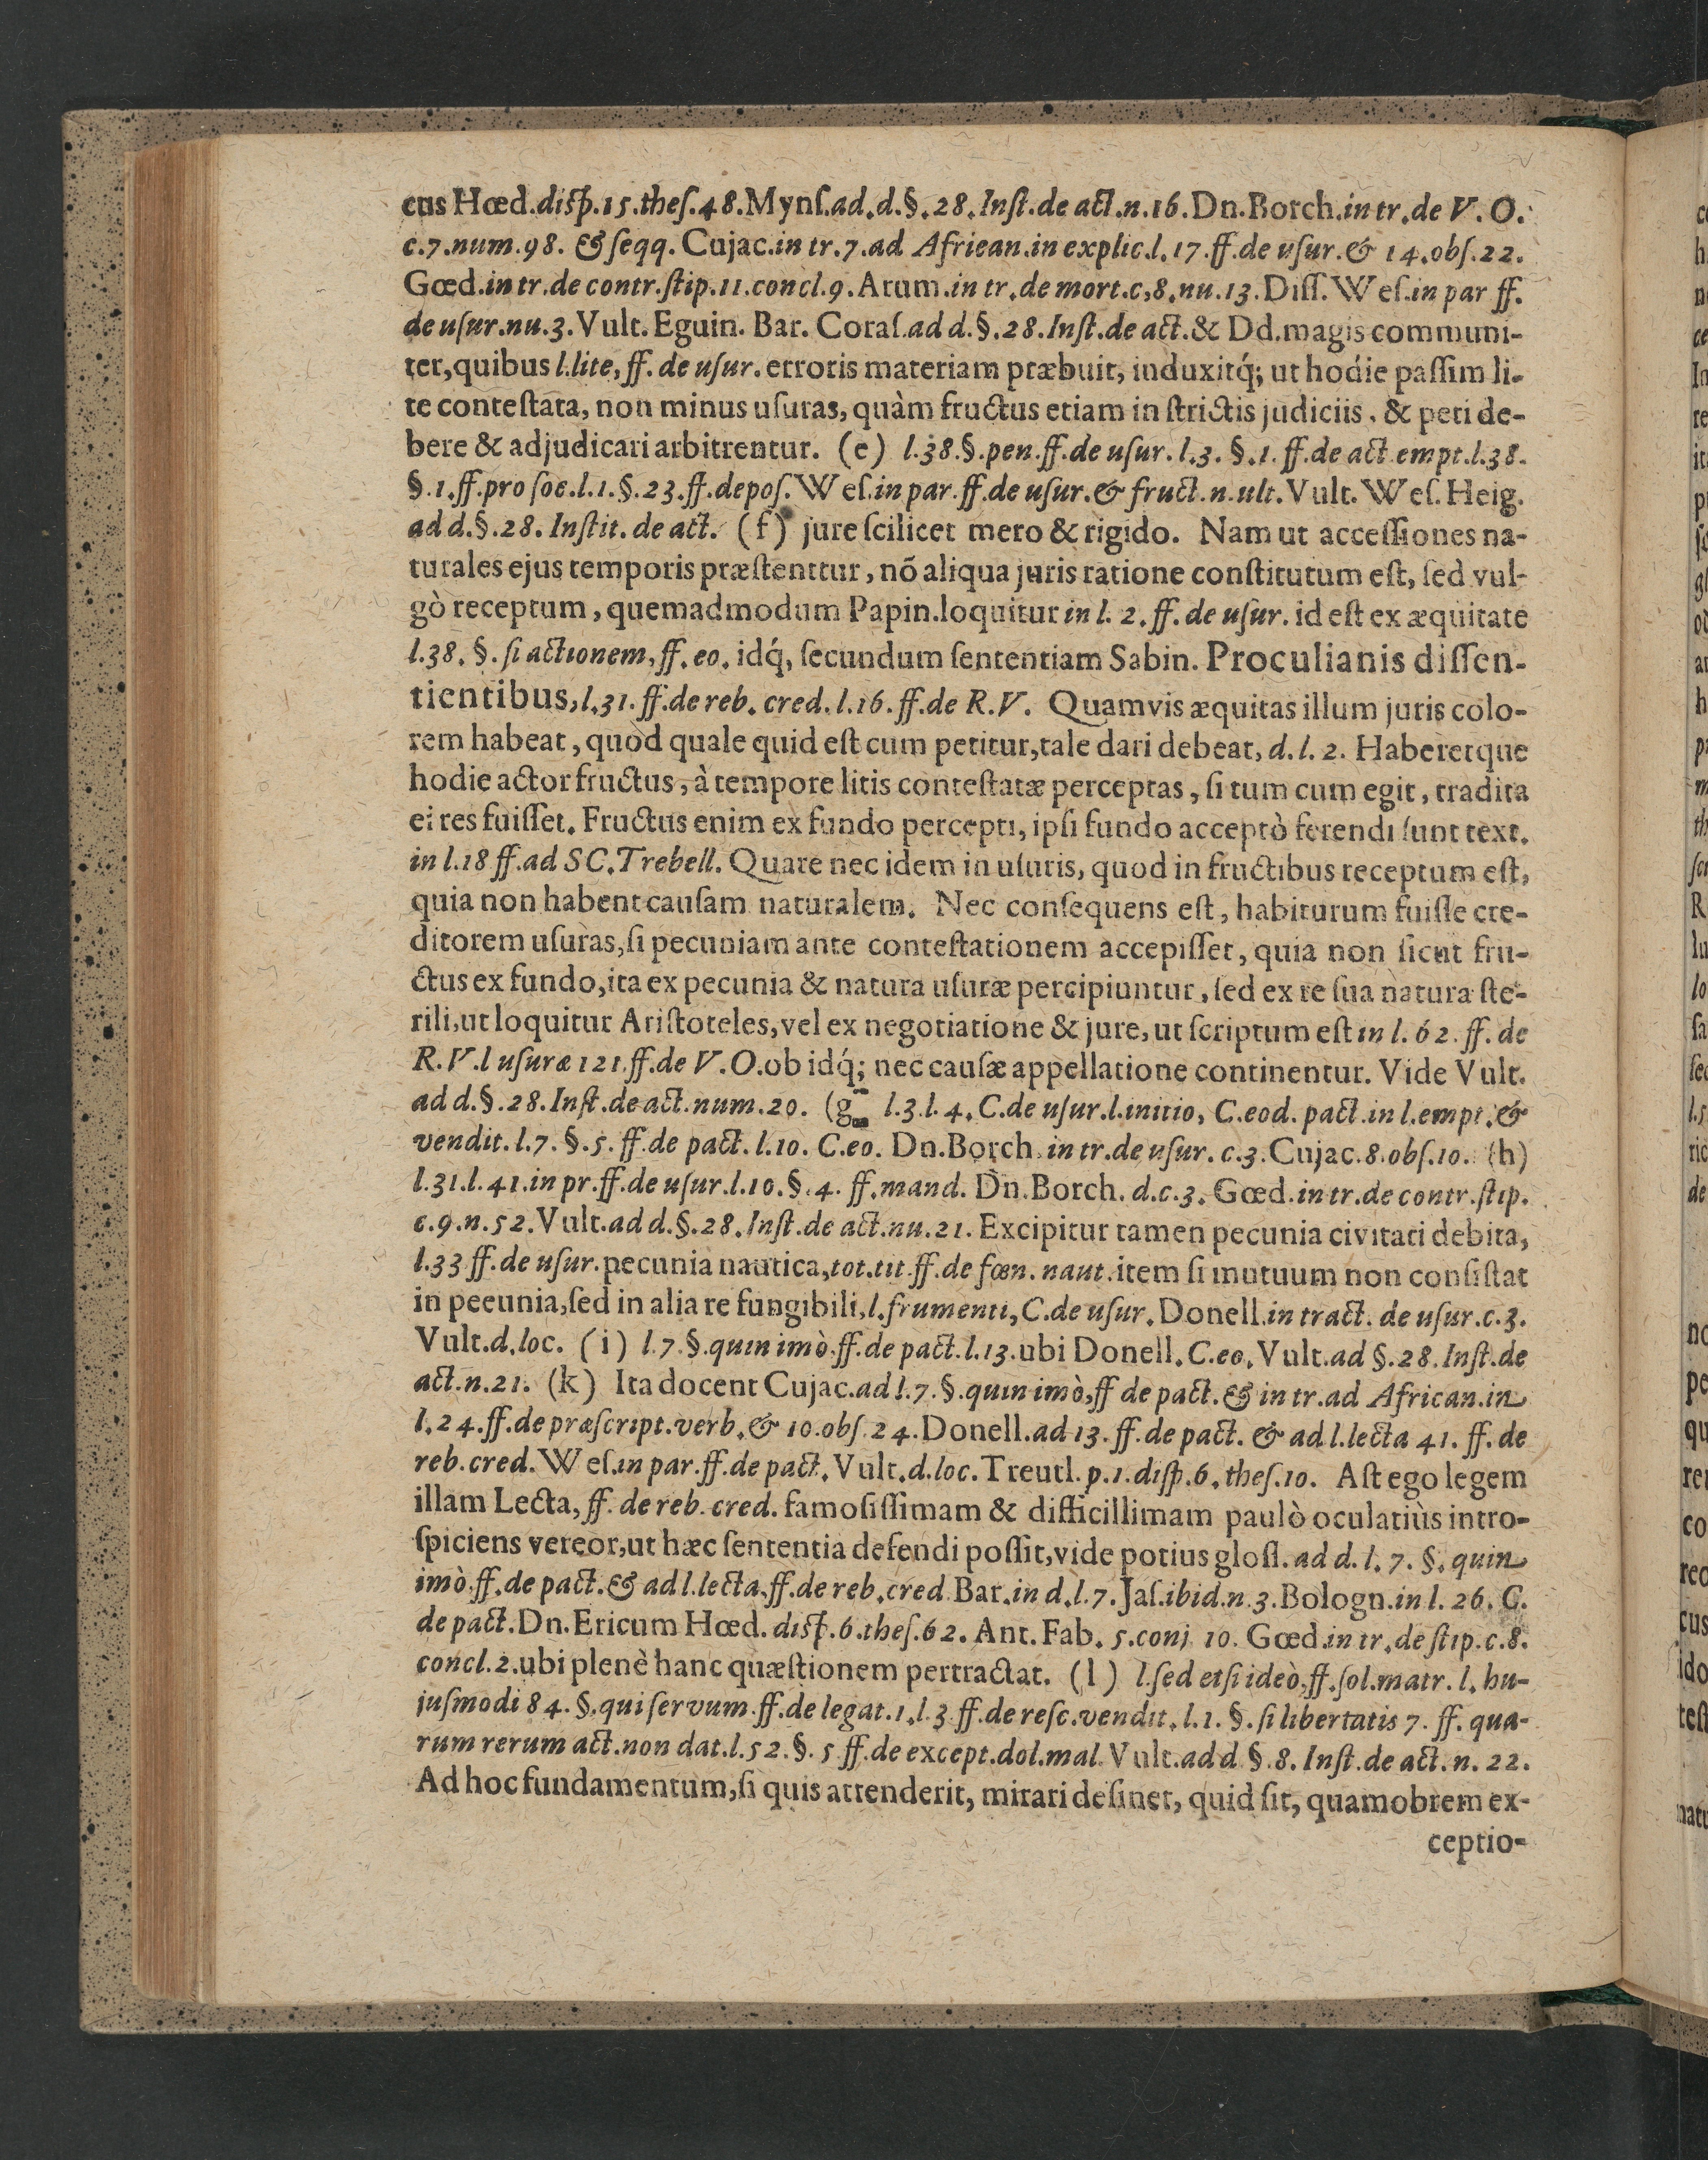 cus Hœd.diſp.15.theſ.48.Mynſ.ad.d.§.28.Inſt.de act.n.16.Dn.Borch.in tr.de V.O.
c.7.num.98. & ſeqq. Cujac.in tr.7.ad Afriean.in explic.l.17.ff.de uſur.& 14.obſ.22.
Gœd.in tr.de contr.ſtip.11.concl.9.Arum.in tr.de mort.c,8.nu.13.Diſſ.Weſ.in par ff.
de uſur.nu.3.Vult.Eguin. Bar. Coraſ.ad d.§.28.Inſt.de act.& Dd.magis communi-
ter,quibus l.lite,ff. de uſur. erroris materiam præbuit, induxitq́; ut hodie paſſim li-
te conteſtata, non minus uſuras, quàm fructus etiam in ſtrictis judiciis, & peti de-
bere & adjudicari arbitrentur. (e) l.38.§.pen.ff.de uſur.l.3. §.1.ff.de act.empt.l.38.
§.1.ff.pro ſoc.l.1.§.23.ff.depoſ.Weſ.in par.ff.de uſur.& fruct.n.ult.Vult.Weſ.Heig.
ad d.§.28. Inſtit. de act. (f) jure ſcilicet mero & rigido. Nam ut acceſſiones na-
turales ejus temporis præſtentur, nõ aliqua juris ratione conſtitutum eſt, ſed vul-
gò receptum, quemadmodum Papin.loquitur in l. 2.ff. de uſur. id eſt ex æquitate
l.38. §. ſi actionem,ff. eo. idq́, ſecundum ſententiam Sabin. Proculianis diſſen-
tientibus,l.31.ff.de reb. cred.l.16.ff.de R.V. Quamvis æquitas illum juris colo-
rem habeat, quòd quale quid eſt cum petitur,tale dari debeat, d.l. 2. Haberetque
hodie actor fructus, à tempore litis conteſtatæ perceptas, ſi tum cum egit, tradita
ei res fuiſſet. Fructus enim ex fundo percepti, ipſi fundo acceptò ferendi ſunt text.
in l.18 ff.ad SC.Trebell. Quare nec idem in uſuris, quod in fructibus receptum eſt,
quia non habent cauſam naturalem. Nec conſequens eſt, habiturum fuiſſe cre-
ditorem uſuras,ſi pecuniam ante conteſtationem accepiſſet, quia non ſicut fru-
ctus ex fundo,ita ex pecunia & natura uſuræ percipiuntur, ſed ex re ſua natura ſte-
rili,ut loquitur Ariſtoteles,vel ex negotiatione & jure, ut ſcriptum eſt in l. 62. ff. de
R.V.l uſuræ 121.ff.de V.O.ob idq́; nec cauſæ appellatione continentur. Vide Vult.
ad d.§.28.Inſt.de act.num.20. (g l.3.l.4.C.de uſur.l.initio, C.eod. pact.in l.empt.&
vendit.l.7. §.5. ff.de pact.l.10. C.eo. Dn.Borch.in tr.de uſur.c.3.Cujac.8.obſ.10. (h)
l.31.l.41.in pr.ff.de uſur.l.10.§.4. ff.mand. Dn.Borch. d.c.3.Gœd.in tr.de contr.ſtip.
c.9.n.52.Vult.ad d.§.28.Inſt.de act.nu.21. Excipitur tamen pecunia civitati debita,
l.33 ff.de uſur.pecunia nautica,tot.tit.ff.de fœn.naut.item ſi mutuum non conſiſtat
in peeunia,ſed in alia re fungibili,l.frumenti,C.de uſur.Donell.in tract. de uſur.c.3.
Vult.d.loc. (i) l.7.§.quin imò.ff.de pact.l.13.ubi Donell.C.eo.Vult.ad §.28.Inſt.de
act.n.21. (k) Ita docent Cujac.ad l.7.§.quin imò,ff de pact.& in tr.ad African.in
l.24.ff.de præſcript.verb.& 10.obſ.24.Donell.ad 13.ff.de pact. & ad l.lecta 41. ff. de
reb.cred.Weſ.in par.ff.de pact.Vult.d.loc.Treutl.p.1.diſp.6.theſ.10. Aſt ego legem
illam Lecta,ff. de reb. cred. famoſiſſimam & difficillimam paulò oculatiùs intro-
ſpiciens vereor,ut hæc ſententia defendi poſſit,vide potius gloſſ. ad d. l. 7. §. quin
imò.ff.de pact.& ad l.lecta.ff.de reb.cred Bar.in d.l.7.Jaſ.ibid.n.3.Bologn.in l. 26. C.
de pact.Dn.Ericum Hœd. diſp.6.theſ.62. Ant.Fab. 5.conj 10. Gœd.in tr.de ſtip.c.8.
concl.2.ubi plenè hanc quæſtionem pertractat. (l) l.ſed etſi ideò,ff.ſol.matr. l. hu-
juſmodi 84.§.qui ſervum.ff.de legat.1.l.3.ff.de reſc.vendit.l.1. §.ſi libertatis 7. ff. qua-
rum rerum act.non dat.l.52.§. 5 ff.de except.dol.mal.Vult.ad d §.8. Inſt.de act.n.22.
Ad hoc fundamentum,ſi quis attenderit, mirari deſinet, quid ſit, quamobrem ex-
ceptio-